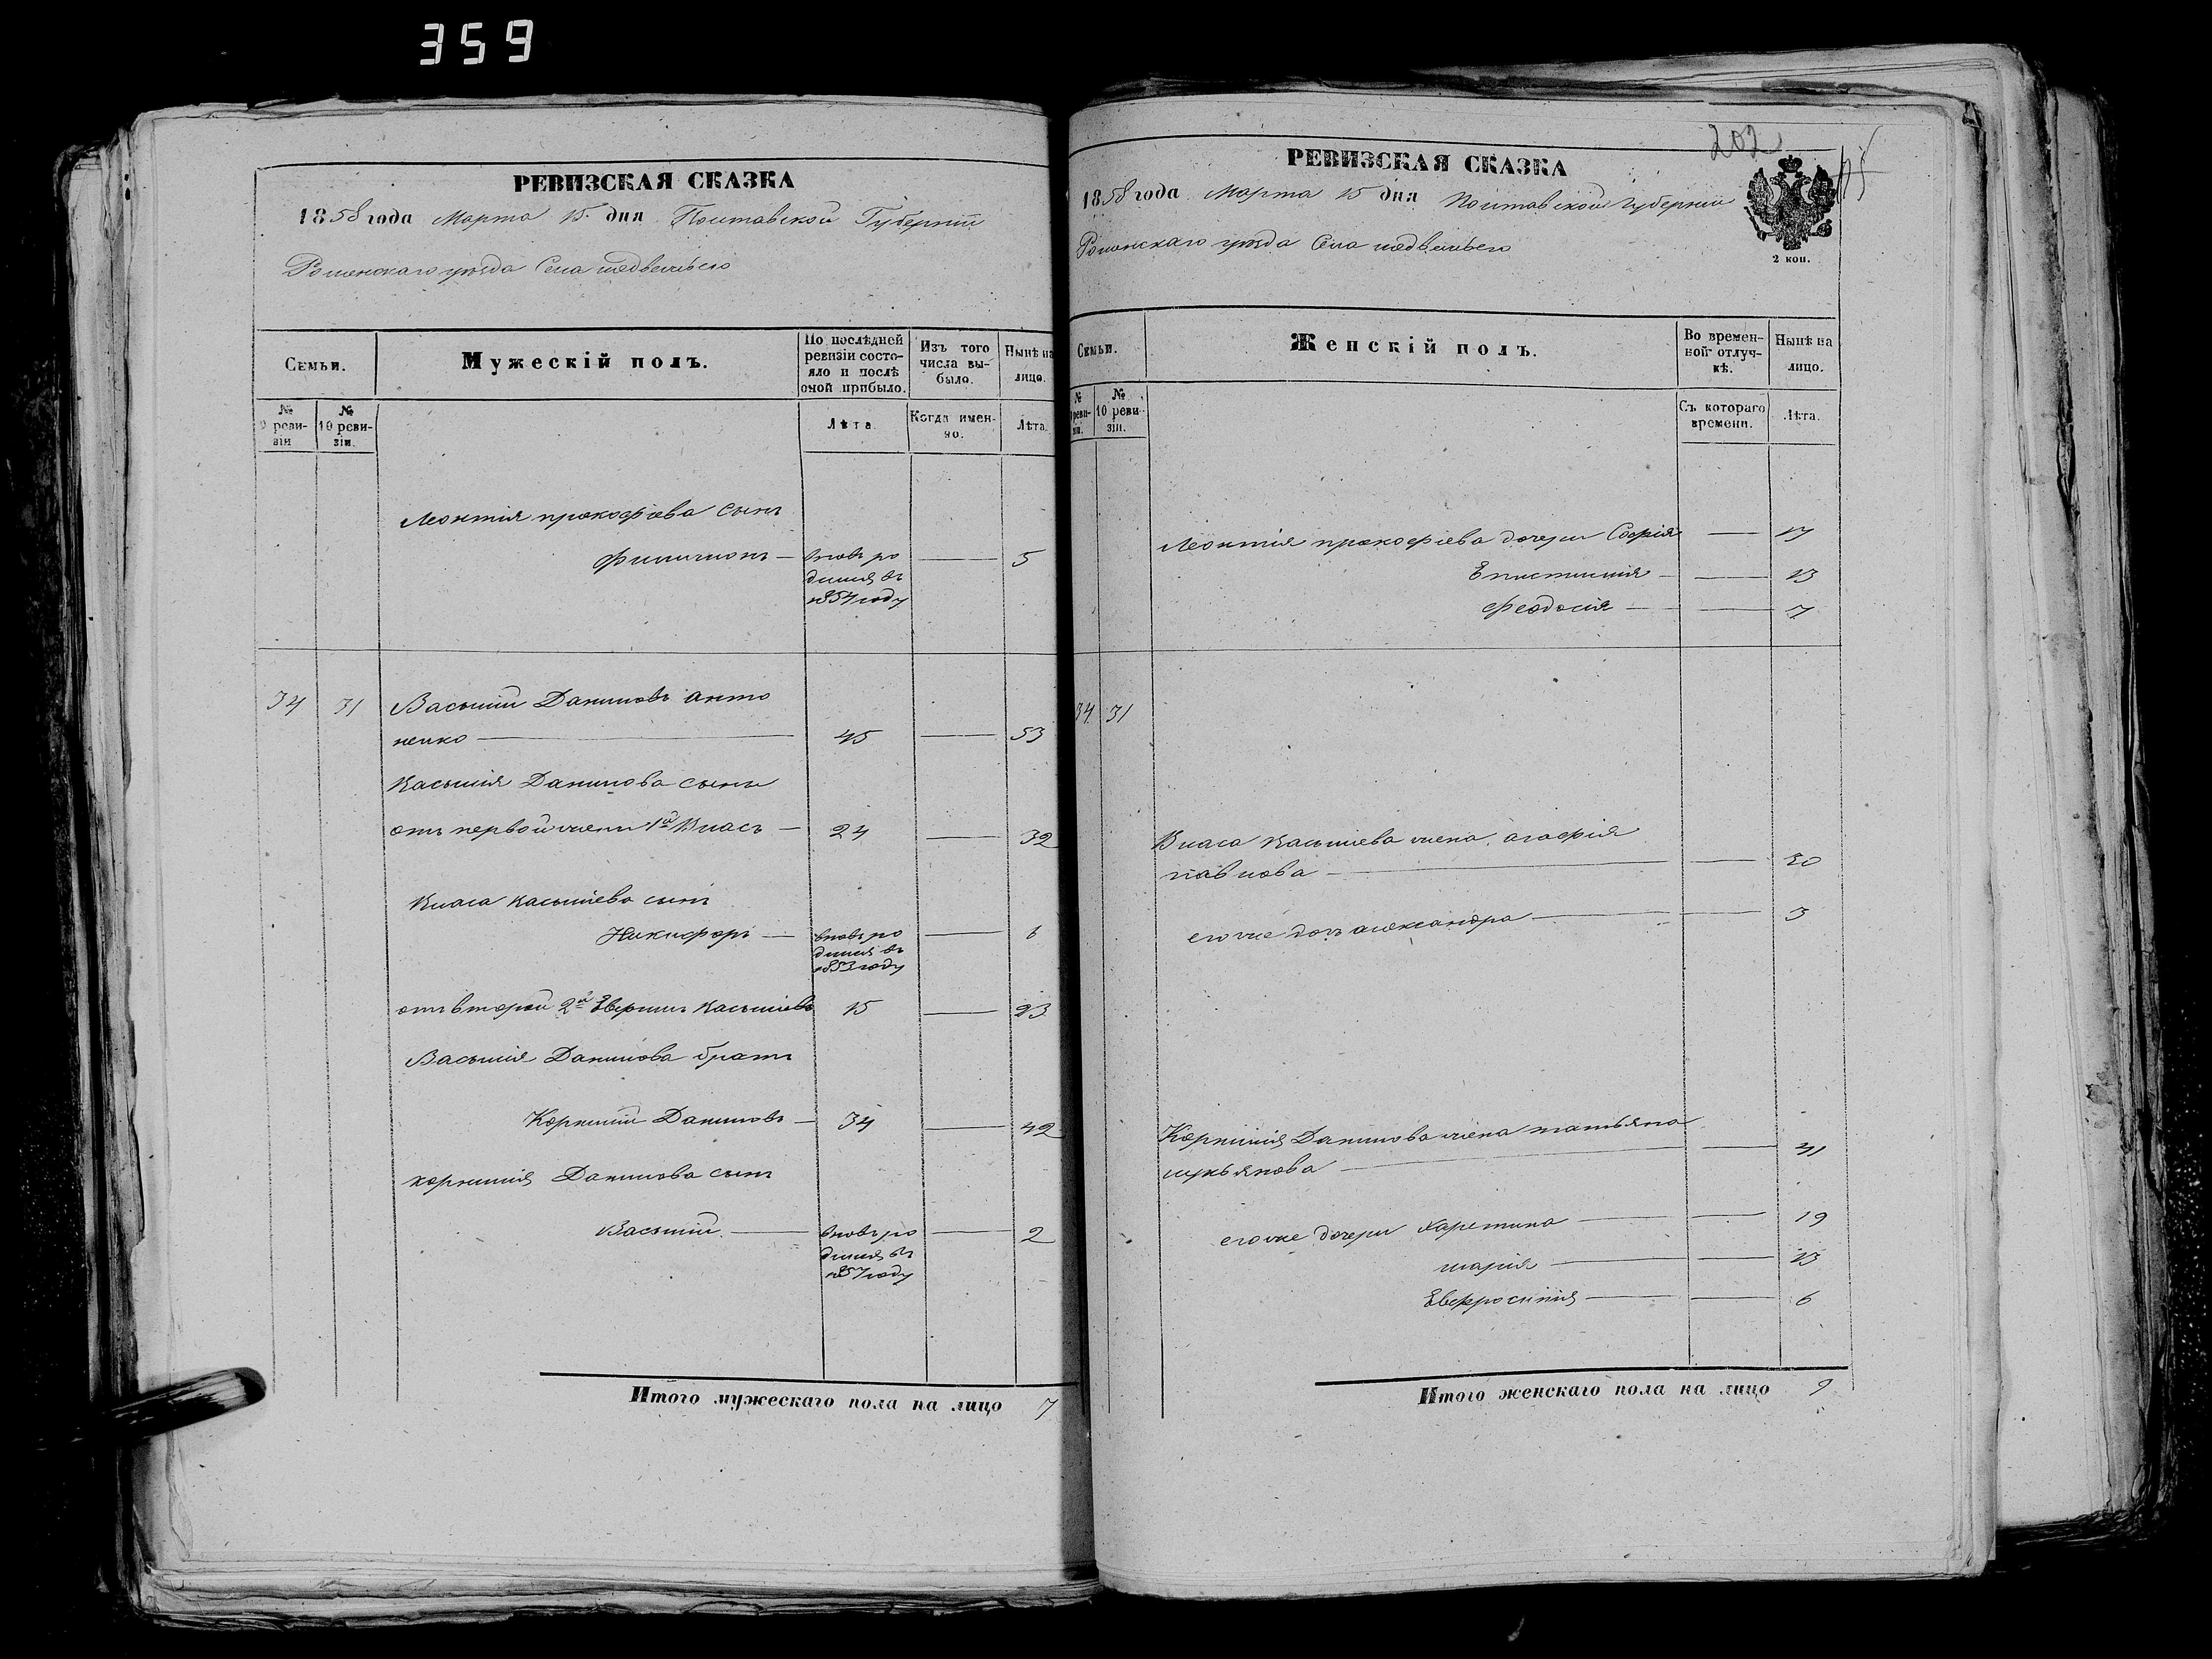 359
РЕВИЗСКАЯ СКАЗКА
1858 года Марта 15 дня Полтавской Губернии
Роменскаго уезда Села медвежьего
Семьи.
Мужескій полъ.
По послѣдней ревизіи состояло и послѣ оной прибыло.
Изъ того числа выбыло.
Нынѣ на лицо.
№ 9 ревизіи
№ 10 ревизіи.
Лѣта
Когда именно.
Лѣта.
Леонтія прокофіева сынъ
Филимонъ — вновь ро — 5
дился въ
1854 году
34 31 Василій Даниловъ анто
ненко — 45 — 53
Василія Данилова сыны
отъ первой жены 1й Власъ — 24 — 32
Власа Васильева сынъ
Никифоръ — вновь ро — 6
дился въ
1853 году
отъ второй 2й Васильевъ 15 — 23
Василія Данилова братъ
Корнилій Даниловъ — 34 — 42
корнилія Данилова сынъ
Василій — вновь ро — 2
дился въ
1857 году
Итого мужескаго пола на лицо 7
202
РЕВИЗСКАЯ СКАЗКА
1858 года Марта 15 дня Полтавской Губернии
Роменскаго уезда Села медвежьего
2 коп.
Семьи.
Женскій полъ.
Во временной отлучкѣ.
Нынѣ на лицо.
№ 9 ревизіи.
№ 10 ревизіи.
Съ котораго времени.
Лѣта.
Леонтія прокофіева дочери Софія — 17
Епистимия — — 13
Феодосія — — 7
34 31
Власа Васильева жена агафія
павлова — — 30
его же дочь александра — — 3
Корнилія Данилова жена татьяна
лукьянова — — 41
его же дочери Харетина — — 19
марія — — 13
Евфросинія — — 6
Итого женскаго пола на лицо 9